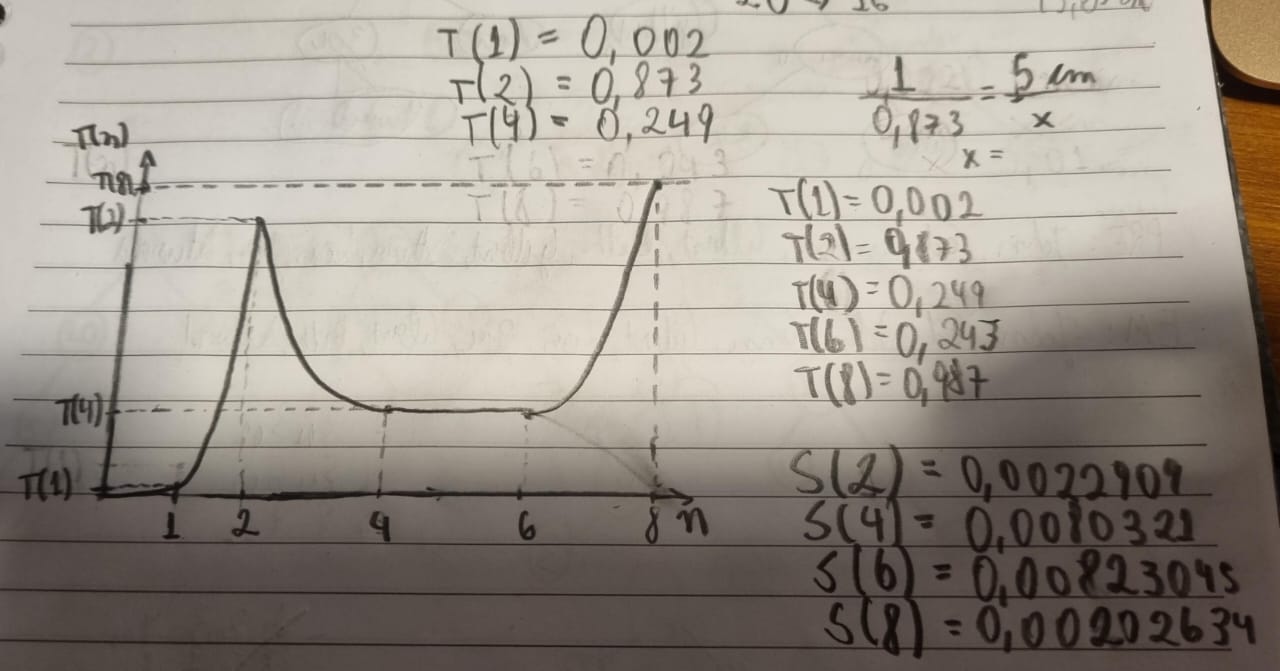 T(1) = 0,002
T(2) = 0,873
T(4) = 0,249
1/0,873 = 5 cm/x
x =
T(n)
T(8)
T(2)
T(4)
T(1)
1 2 4 6 8 n
T(1) = 0,002
T(2) = 0,873
T(4) = 0,249
T(6) = 0,243
T(8) = 0,987
S(2) = 0,0022909
S(4) = 0,0080321
S(6) = 0,00823045
S(8) = 0,00202634